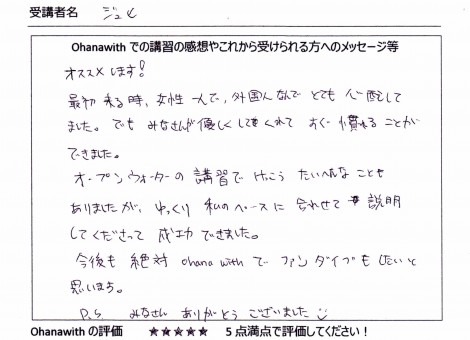 受講者名 ジュヒ
Ohanawith での講習の感想やこれから受けられる方へのメッセージ等
オススメします!
最初 来る時、女性 一人で、外国人なんで とても 心配して
ました。でも みなさんが優しくしてくれて すぐ 慣れる ことが
できました。
オープンウォーターの 講習で けっこう たいへんな ことも
ありましたが、ゆっくり 私の ペースに 合わせて 説明
してくださって 成功できました。
今後も 絶対 ohana with で ファンダイブも したいと
思います。
P.S. みなさん ありがとう ございました
Ohanawith の評価 ★★★★★ 5 点満点で評価してください!